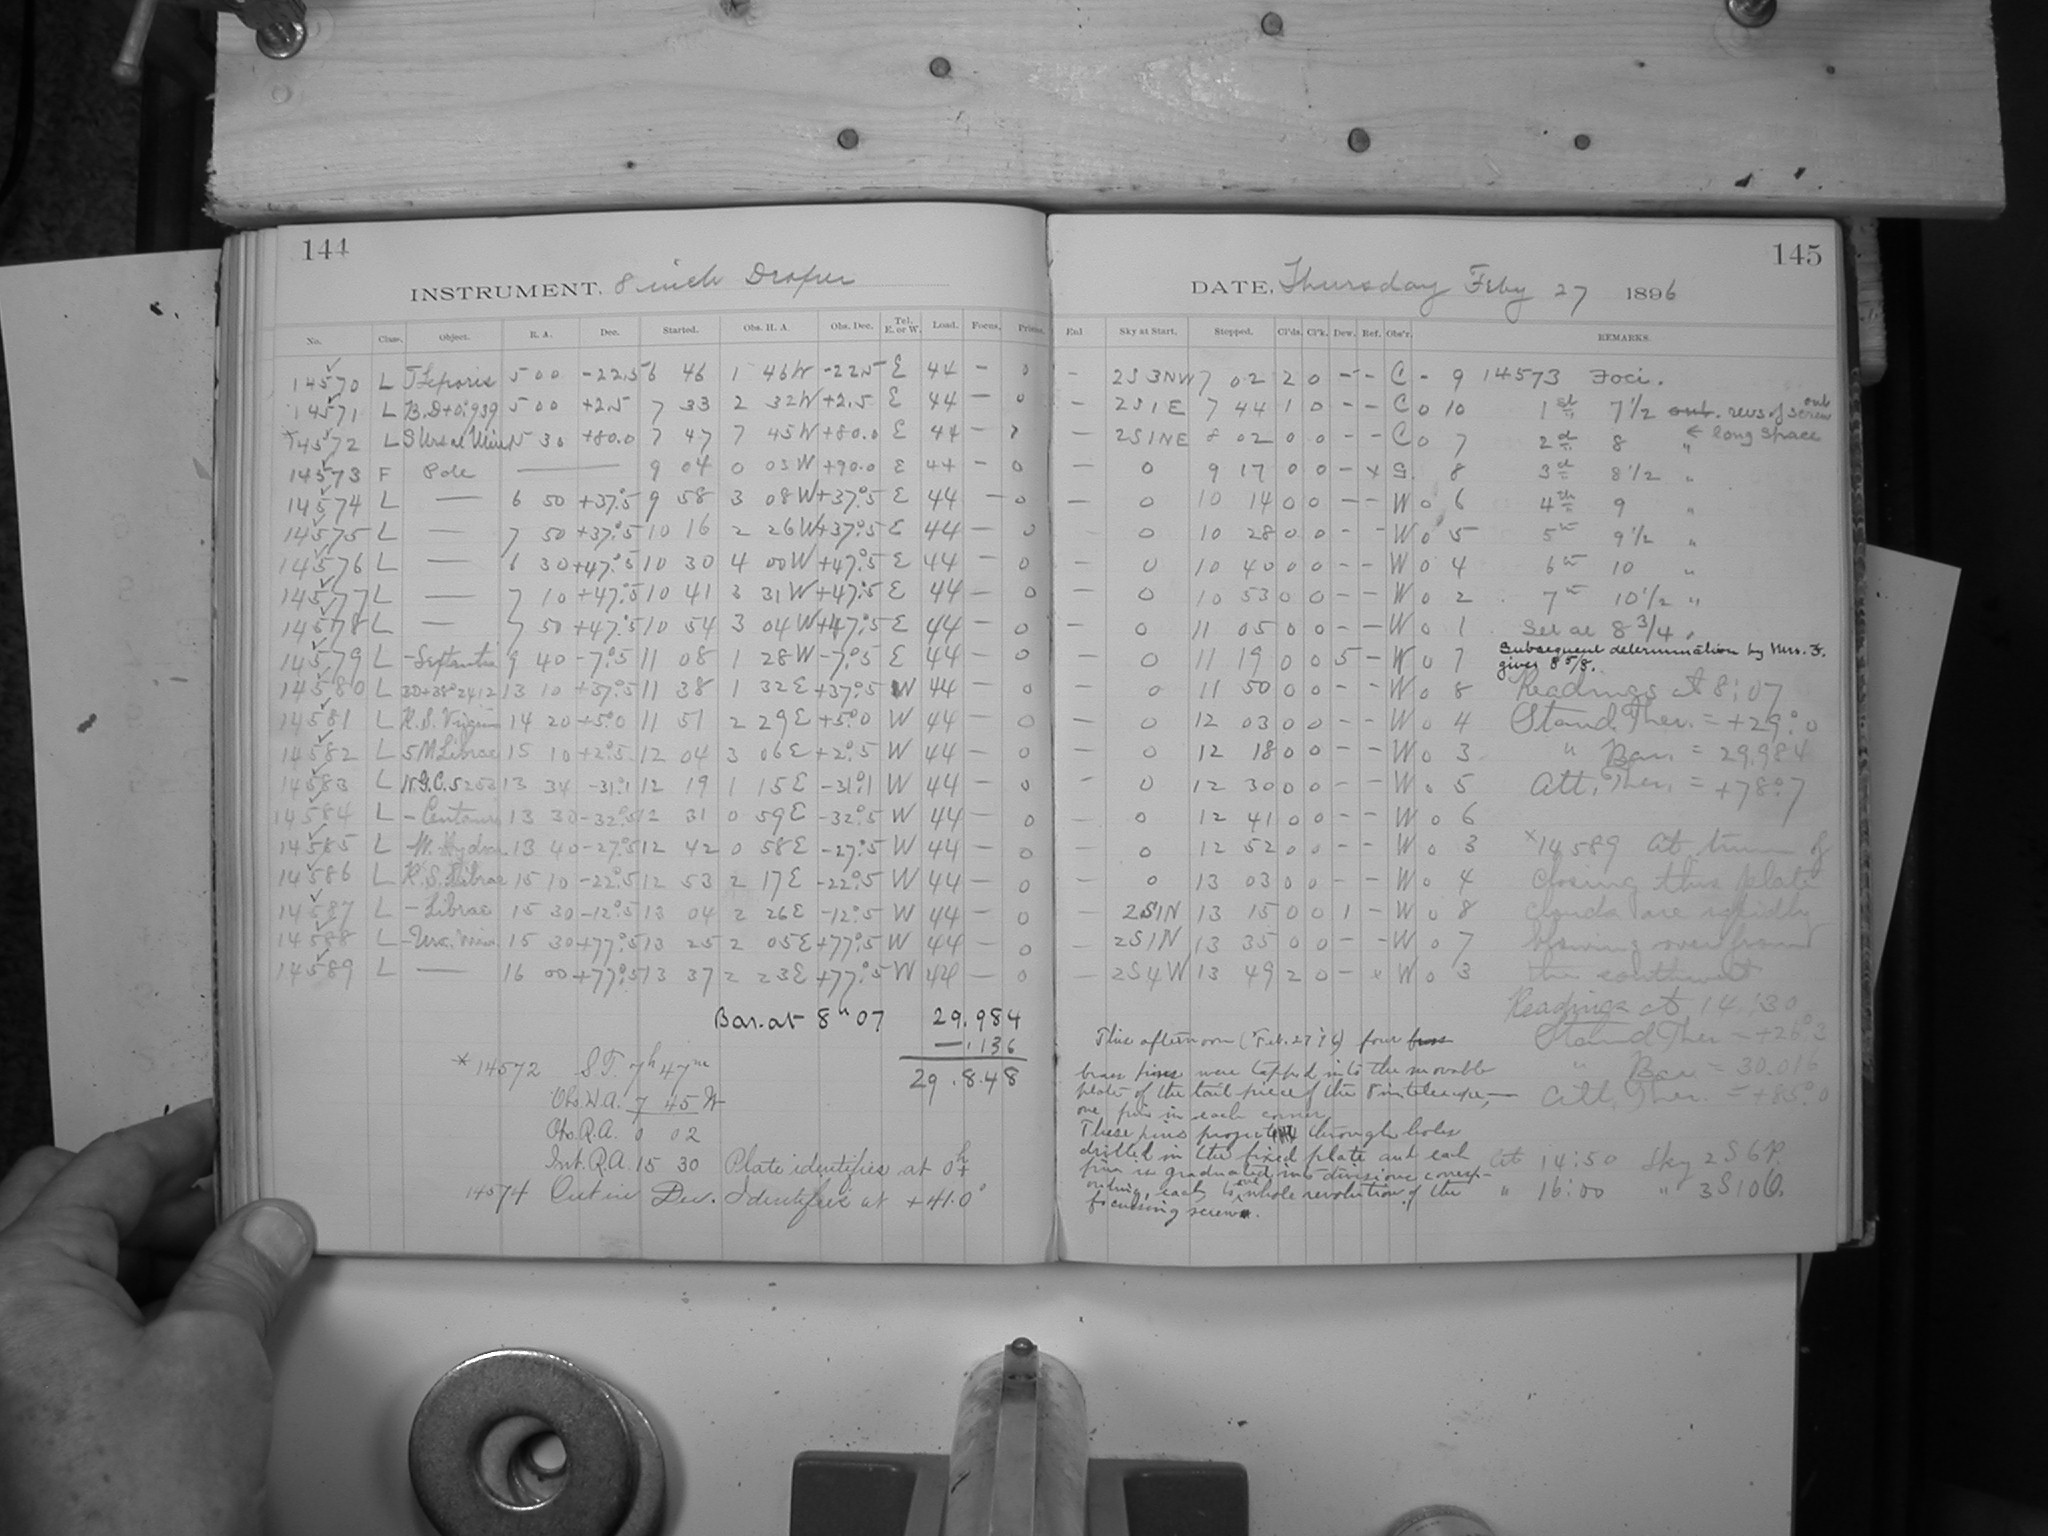 144
INSTRUMENT, 8 inch Draper
No. Class. Object. R. A. Dec. Started. Obs. H. A. Obs. Dec. Tel. E. or W. Load. Focus. Prisms.
14570 L T Leporis 5 00 -22.5 6 46 1 46W -22.5 E 44 - 0
14571 L B.D+0°.939 5 00 +2.5 7 33 2 32W +2.5 E 44 - 0
*14572 L S Ursae Min 15 30 +80.0 7 47 7 45W +80.0 E 44 - ?
14573 F Pole — 9 04 0 03W +90.0 E 44 - 0
14574 L — 6 50 +37°.5 9 58 3 08W +37°.5 E 44 - 0
14575 L — 7 50 +37°.5 10 16 2 26W +37°.5 E 44 - 0
14576 L — 6 30 +47°.5 10 30 4 00W +47°.5 E 44 - 0
14577 L — 7 10 +47°.5 10 41 3 31W +47°.5 E 44 - 0
14578 L — 7 50 +47°.5 10 54 3 04W +47°.5 E 44 - 0
14579 L - 9 40 -7°.5 11 08 1 28W -7°.5 E 44 - 0
14580 L BD+38°2412 13 10 +37°.5 11 38 1 32E +37°.5 W 44 - 0
14581 L R.S. Virginis 14 20 +5°.0 11 51 2 29E +5°.0 W 44 - 0
14582 L Librae 15 10 +2°.5 12 04 3 06E +2°.5 W 44 - 0
14583 L N.G.C. 5253 13 34 -31°.1 12 19 1 15E -31°.1 W 44 - 0
14584 L - Centauri 13 30 -32°.5 12 31 0 59E -32°.5 W 44 - 0
14585 L W. Hydrae 13 40 -27°.5 12 42 0 58E -27°.5 W 44 - 0
14586 L R.S. Librae 15 10 -22°.5 12 53 2 17E -22°.5 W 44 - 0
14587 L - Librae 15 30 -12°.5 13 04 2 26E -12°.5 W 44 - 0
14588 L - Urs. Min. 15 30 +77°.5 13 25 2 05E +77°.5 W 44 - 0
14589 L — 16 00 +77°.5 13 37 2 23E +77°.5 W 44 - 0
Bar. at 8h 07 29.984
-.136
29.848
*14572 S.T. 7h 47m
Obs. H.A. 7 45 W
Obs. R.A. 0 02
Int. R.A. 15 30 Plate identifies at 0h
14574 Out in Dec. Identifies at +41.0°
145
DATE, Thursday Feby 27 1896
Enl Sky at Start. Stopped. Cl'ds. Cl'k. Dew. Ref. Obs'r. REMARKS.
- 2S3NW 7 02 2 0 - - C - 9 14573 Foci.
- 2S1E 7 44 1 0 - - C 0 10 1st 7 1/2 out. revs of screw out
- 2S1NE 8 02 0 0 - - C 0 7 2d 8 " ← long space
- 0 9 17 0 0 - x G. 8 3d 8 1/2 "
- 0 10 14 0 0 - - W 0 6 4th 9 "
- 0 10 28 0 0 - - W 0 5 5th 9 1/2 "
- 0 10 40 0 0 - - W 0 4 6th 10 "
- 0 10 53 0 0 - - W 0 2 7th 10 1/2 "
- 0 11 05 0 0 - - W 0 1 Set at 8 3/4 "
- 0 11 19 0 0 5 - W 0 7 Subsequent determination by Mrs. F. gives 8 5/8.
- 0 11 50 0 0 - - W 0 8 Readings at 8:07
- 0 12 03 0 0 - - W 0 4 Stand. Ther. = +29°.0
- 0 12 18 0 0 - - W 0 3 " Bar. = 29.984
- 0 12 30 0 0 - - W 0 5 Att. Ther. = +78°.7
- 0 12 41 0 0 - - W 0 6
- 0 12 52 0 0 - - W 0 3 *14589 At time of
- 0 13 03 0 0 - - W 0 4 closing this plate
- 2S1N 13 15 0 0 1 - W 0 8 clouds are rapidly
- 2S1N 13 35 0 0 - - W 0 7 blowing over from
- 2S4W 13 49 2 0 - x W 0 3 the southwest
Readings at 14:30
Stand Ther = +26°.2
" Bar = 30.016
Att. Ther. = +85°.0
At 14:50 Sky 2S6P.
" 16:00 " 3S10O.
This afternoon (Feb. 27 '96) four brass
brass pins were tapped into the movable
plate of the tail piece of the 8 in telescope, —
one pin in each corner.
These pins project through holes
drilled in the fixed plate and each
pin is graduated into divisions corresp-
onding, each to one whole revolution of the
focussing screw.